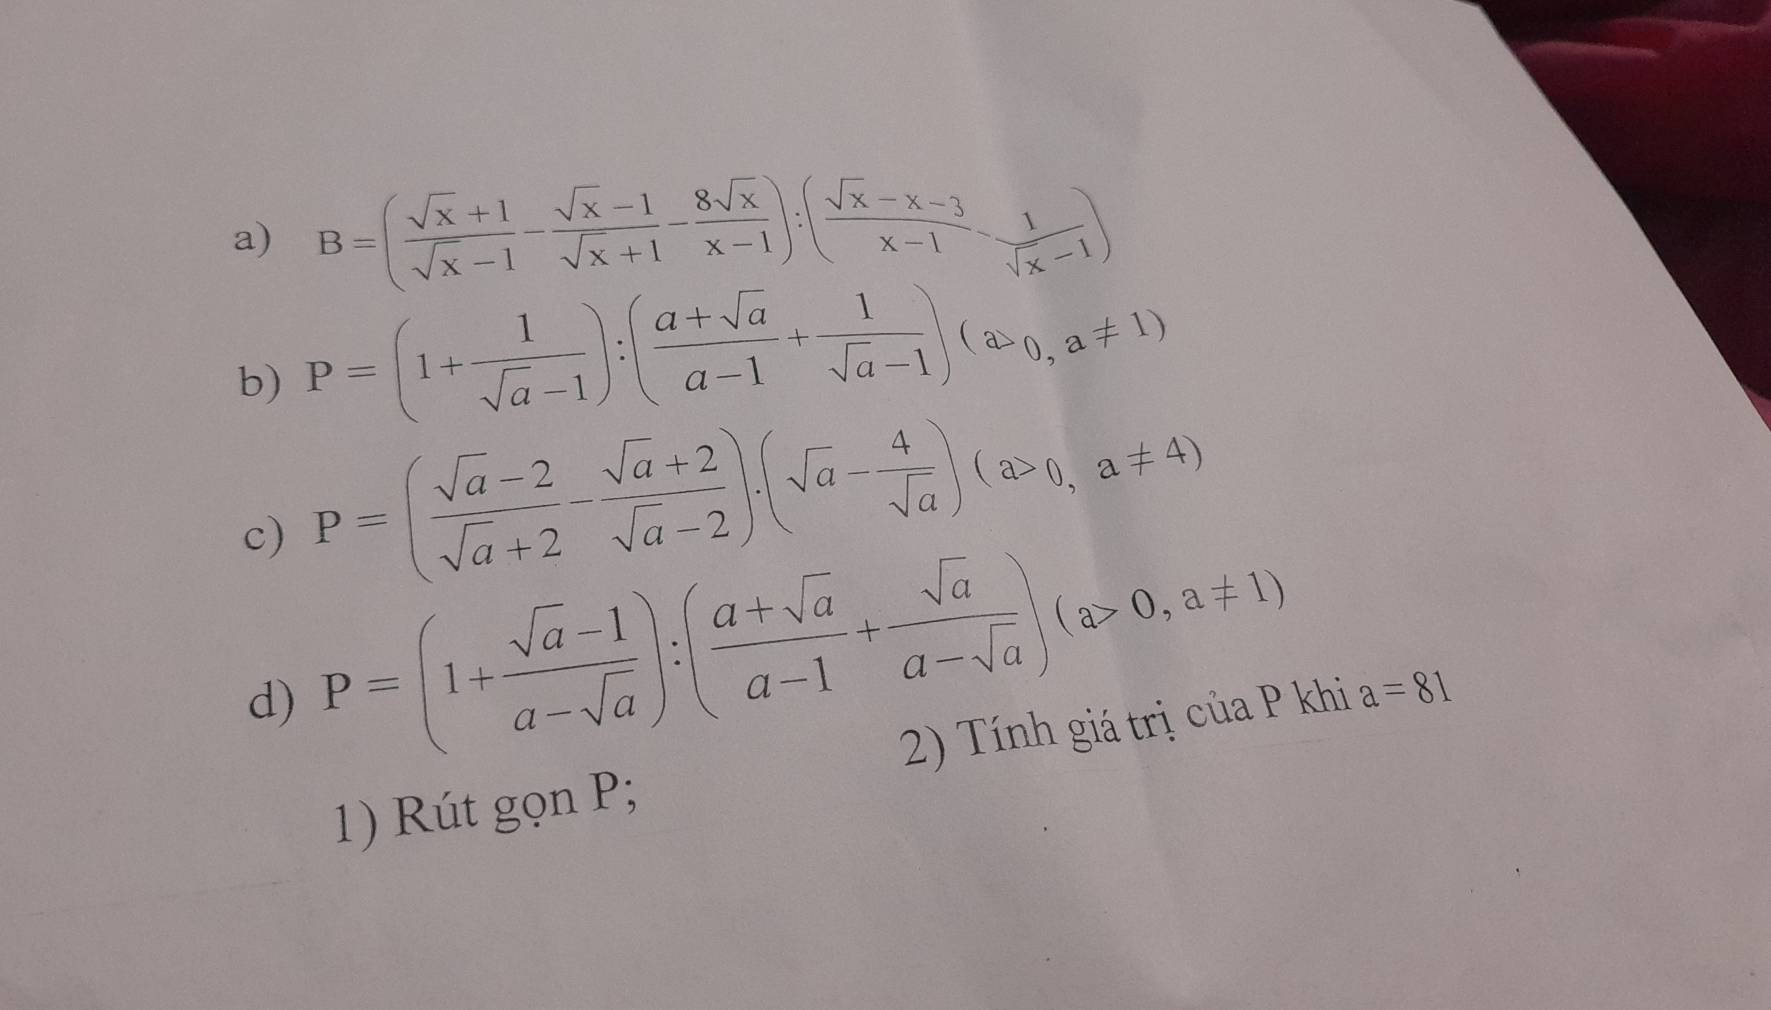 a) B = ( (√x + 1)/(√x − 1) − (√x − 1)/(√x + 1) − 8√x/(x − 1) ) : ( (√x − x − 3)/(x − 1) − 1/(√x − 1) )
b) P = ( 1 + 1/(√a − 1) ) : ( (a + √a)/(a − 1) + 1/(√a − 1) ) ( a > 0, a ≠ 1)
c) P = ( (√a − 2)/(√a + 2) − (√a + 2)/(√a − 2) ) . ( √a − 4/√a ) ( a > 0, a ≠ 4)
d) P = ( 1 + (√a − 1)/(a − √a) ) : ( (a + √a)/(a − 1) + √a/(a − √a) ) ( a > 0, a ≠ 1)
1) Rút gọn P; 2) Tính giá trị của P khi a = 81